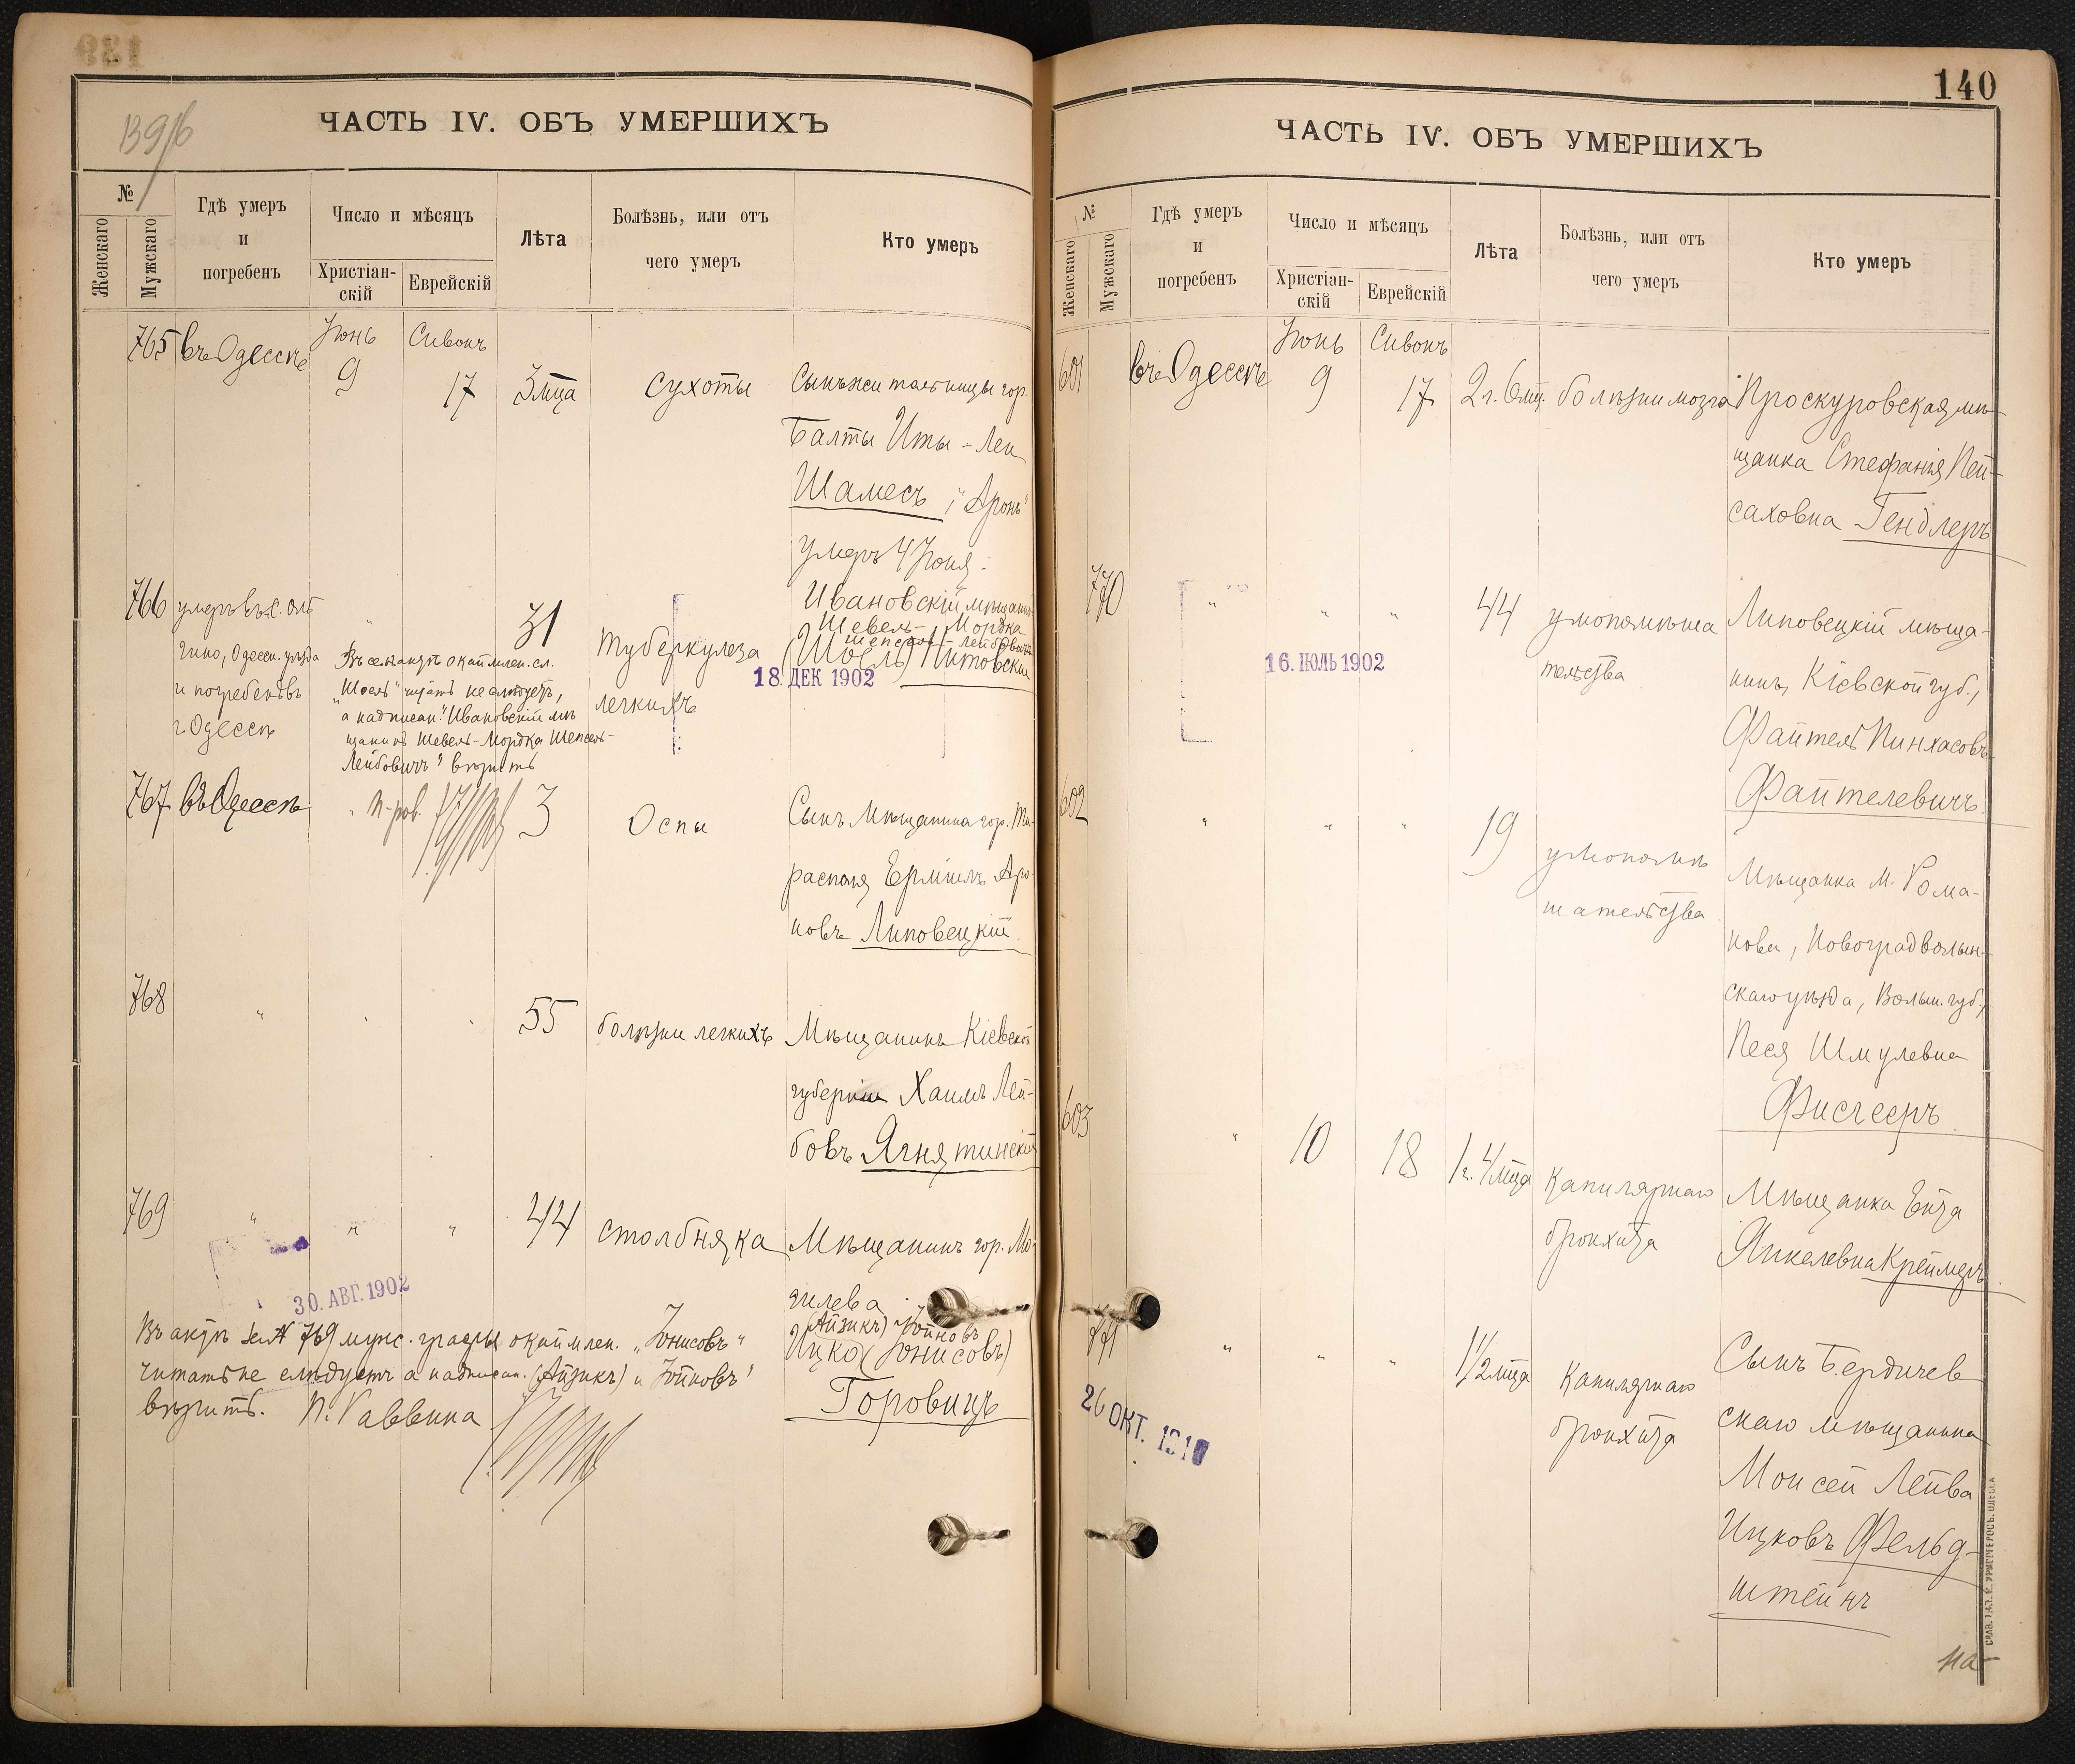 139/б
ЧАСТЬ IV. ОБЪ УМЕРШИХЪ
№
Женскаго
Мужскаго
Гдѣ умеръ
и
погребенъ
Число и мѣсяцъ
Христіан-
скій
Еврейскій
Лѣта
Болѣзнь, или отъ
чего умеръ
Кто умеръ
765 въ Одессѣ Іюнь 9 Сивонъ 17 3 м-ца Сухоты
Сынъ жи гор.
Балты Иты-Леи
Шамесъ, "Аронъ"
умеръ 4 Іюня.
766 умеръ въ с.
Одесск. уѣзда
и погребенъ въ
г. Одессѣ
" 31 Туберкулеза
легкихъ
Ивановскій мѣщанинъ
Шевель-Мордка
Шепсель-Лейбовичъ
(Шоель) Китовскій
18. ДЕК 1902
Въ семъ актѣ окаймлен. сл.
"Шоель" читать не слѣдуетъ,
а надписан. "Ивановскій мѣ-
щанинъ Шевель-Мордка Шепсель-
Лейбовичъ" вѣрить
767 въ Одессѣ " П. рав. 3 Оспы
Сынъ Мѣщанина гор. Ти-
располя Ермілъ Аро-
новъ Липовецкій
768 " " " 55 болѣзни легкихъ
Мѣщанинъ Кіевской
губерніи Хаимъ Лей-
бовъ Ягнятинскій
769 " " " 44 столбняка
Мѣщанинъ гор. Мо-
гилева
(Айзикъ) Іойновъ
Ицко (Іонисовъ)
Горовицъ
30. АВГ. 1902
Въ актѣ за № 769 мужс. графы окаймлен. "Іонисовъ"
читать не слѣдуетъ а надписан. (Айзикъ) и Іойновъ"
вѣрить. П. Раввина
140
ЧАСТЬ IV. ОБЪ УМЕРШИХЪ
№
Женскаго
Мужскаго
Гдѣ умеръ
и
погребенъ
Число и мѣсяцъ
Христіан-
скій
Еврейскій
Лѣта
Болѣзнь, или отъ
чего умеръ
Кто умеръ
601 въ Одессѣ Іюнь 9 Сивонъ 17 2 г. 6 мц. болѣзни мозга
Проскуровская мѣ-
щанка Стефанія Пей-
саховна Гендлеръ
770 " " " 44 умопомѣша
тельства
Липовецкій мѣща-
нинъ, Кіевской губ.,
Файтель Пинхасовъ
Файтелевичъ
16. ІЮЛЬ 1902
602 " " " 19 умопомѣ
шательства
Мѣщанка м. Рома-
нова, Новоградволын-
скаго уѣзда, Волын. губ.,
Песя Шмулевна
603 " 10 18 1 г. 4 м-ца Капилярнаго
бронхита
Мѣщанка Ента
Янкелевна Креймеръ
771 " " " 1 1/2 м-ца Капилярнаго
бронхита
Сынъ Бердичев
скаго мѣщанина
Моисей Лейба
Ицковъ Фельд-
штейнъ
26 ОКТ. 191